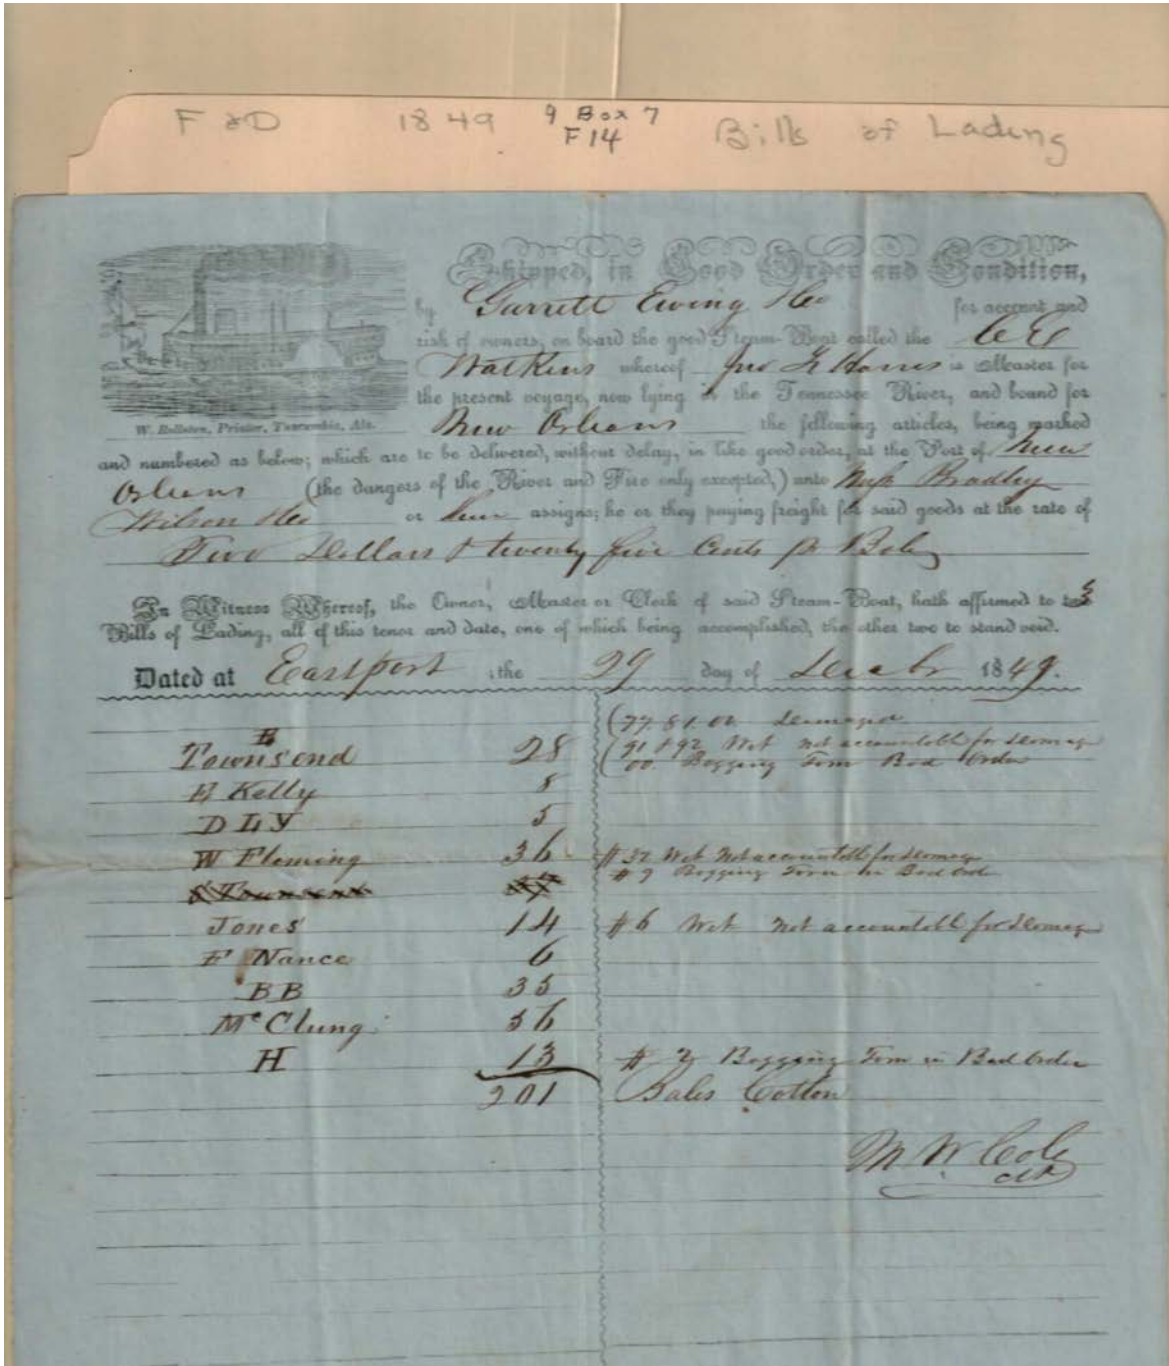 F & D 1849 9 Box 7 Bills of Lading
F14
Shipped, in Good Order and Condition,
by Garrett Ewing & Co for account and
risk of owners, on board the good Steam-Boat called the
Watkins whereof Jno Harris is Master for
the present voyage, now lying in the Tennessee River, and bound for
W. Rollston, Printer, Tuscumbia, Ala.
New Orleans the following articles, being marked
and numbered as below; which are to be delivered, without delay, in like good order, at the Port of New
Orleans (the dangers of the River and Fire only excepted,) unto Mess Bradley
Wilson & Co or their assigns; he or they paying freight for said goods at the rate of
Two Dollars & twenty five Cents pr Bale
In Witness Whereof, the Owner, Master or Clerk of said Steam-Boat, hath affirmed to 3
Bills of Lading, all of this tenor and date, one of which being accomplished, the other two to stand void.
Dated at Eastport the 29 day of Decbr 1849.
(77. 81. 00. Damaged
B
Townsend 28 (91 & 92 Wet not accountabl for Damag
00. Bagging Torn Bad Order
E Kelly 8
D L Y 5
W Fleming 36 # 32 Wet Not accountabl for Damag
# 9 Bagging Torn in Bad Order
Jones 14 # 6 Wet Not accountabl for Damag
F Nance 6
BB 35
McClung 56
H 13 # 2 Bagging Torn in Bad Order
201 Bales Cotton
M W Cole
Clk